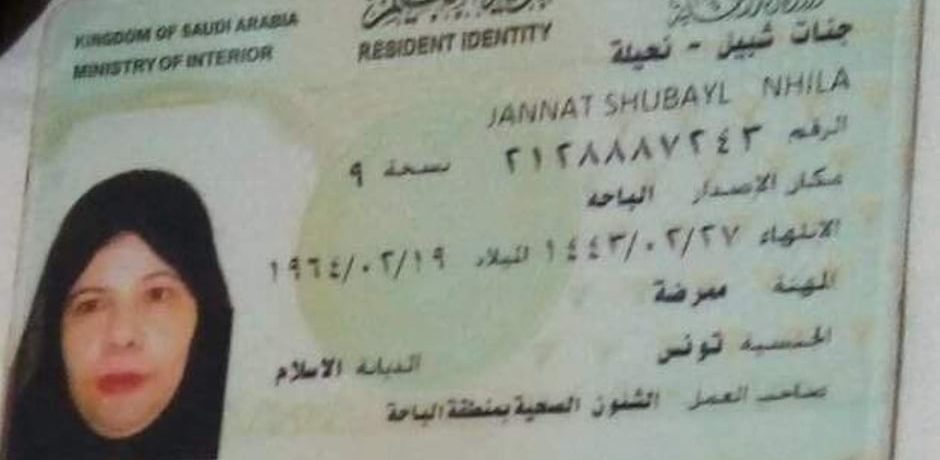 KINGDOM OF SAUDI ARABIA
MINISTRY OF INTERIOR
RESIDENT IDENTITY
جنات شبيل - نحيلة
JANNAT SHUBAYL NHILA
الرقم ٢١٢٨٨٨٧٢٤٣ نسخة ٩
مكان الإصدار الباحه
الانتهاء ١٤٤٣/٠٢/٢٧ الميلاد ١٩٦٤/٠٢/١٩
المهنة ممرضة
الجنسية تونس الديانة الاسلام
صاحب العمل الشئون الصحية بمنطقة الباحة